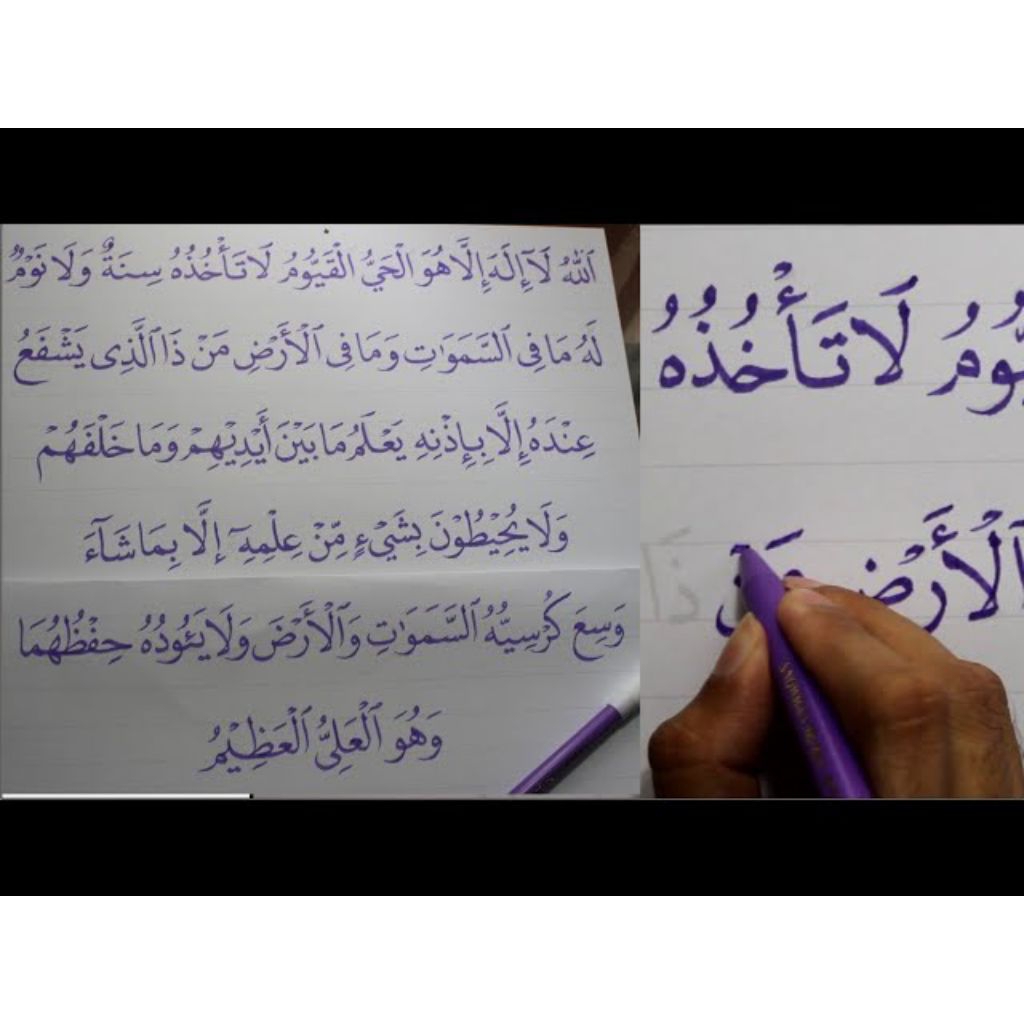 اَللّٰهُ لَآ إِلَهَ إِلَّا هُوَ الْحَيُّ الْقَيُّومُ لَا تَأْخُذُهُ سِنَةٌ وَلَا نَوْمٌ
لَهُ مَا فِى السَّمَوَاتِ وَمَا فِى الْأَرْضِ مَنْ ذَا الَّذِى يَشْفَعُ
عِنْدَهُ إِلَّا بِإِذْنِهِ يَعْلَمُ مَا بَيْنَ أَيْدِيْهِمْ وَمَا خَلْفَهُمْ
وَلَا يُحِيْطُوْنَ بِشَيْءٍ مِّنْ عِلْمِهِٓ إِلَّا بِمَا شَآءَ
وَسِعَ كُرْسِيُّهُ السَّمَوٰتِ وَالْأَرْضَ وَلَا يَئُودُهُ حِفْظُهُمَا
وَهُوَ الْعَلِىُّ الْعَظِيْمُ
يُّومُ لَا تَأْخُذُهُ
الْأَرْضِ مَن ذَا